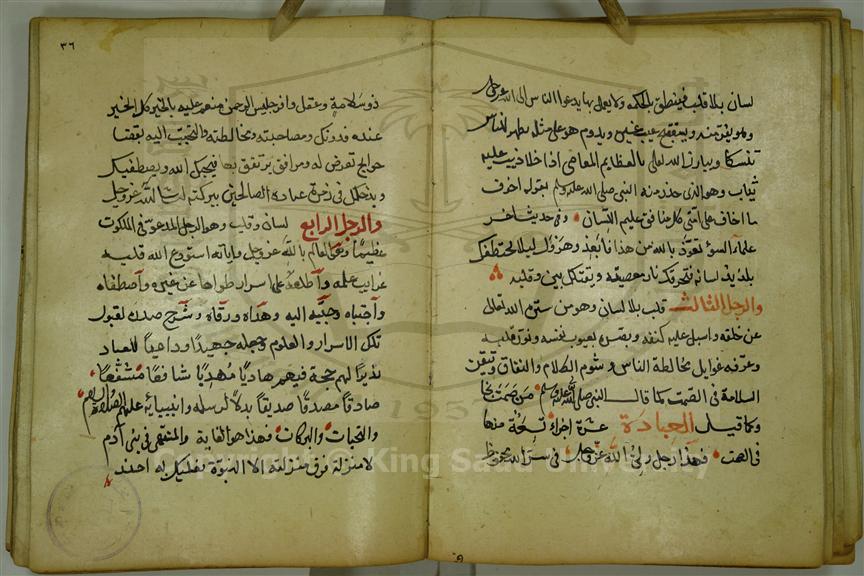 لسان بلا قلب فينطق بالحكمة ولا يعمل بها يدعوا الناس الى الله عز وجل
وهو يفر منه ويستقبح عيب غيره ويدوم هو على مثله يظهر للناس
تنسكا ويبارز الله تعالى بالعظايم المعاصي اذا خلا ذيب عليه
ثياب وهو الذي حذر منه النبي صلى الله عليه وسلم بقوله اخوف
ما اخاف على امتي كل منافق عليم اللسان وفي حديث اخر
علماء السوء نعوذ بالله من هذا فابعد وهرول ليلا يختطفك
بلذيذ لسانه فتحرقك نار معصيته ويقتلك بين وقلبه
والرجل الثالث قلب بلا لسان وهو من ستره الله تعالى
عن خلقه واسبل عليه كنفه وبصره بعيوب نفسه ونور قلبه
وعرفه غوايل مخالطة الناس وشوم الكلام والنفاق وتيقن
السلامة في الصمت كما قال النبي صلى الله عليه وسلم من صمت نجا
وكما قيل العبادة عشرة اجزاء تسعة منها
في الصمت فهذا رجل ولي الله عز وجل في ستر الله محفوظ
٣٦
ذو سلامة وعقل وافر جليس الرحمن منعم عليه بالخير كل الخير
عنده فدونك ومصاحبته ومخالطته والتحبب اليه بقضا
حوايج تعرض له ومرافق يرتفق بها فيحبك الله ويصطفيك
ويدخلك في زمرة عباده الصالحين ببركته ان شا الله عز وجل
والرجل الرابع لسان وقلب وهو الرجل المدعو في الملكوت
عظيما وهو العالم بالله عز وجل واياته استودع الله قلبه
غرايب علمه واطلعه على اسرار طواها عن غيره واصطفاه
واجتباه وجذبه اليه وهداه ورقاه وشرح صدره لقبول
تلك الاسرار والعلوم وجعله جهبذا وداعيا للعباد
نذيرا لهم حجة فيهم هاديا مهديا شافعا مشفعا
صادقا مصدقا صديقا بدلا لرسله وانبيايه عليهم الصلاة والسلام
والتحيات والبركات فهذا هو الغاية والمنتهى في بني آدم
لا منزلة فوق منزلته الا النبوة فعليك به احذر
Copyright © King Saud University
1957